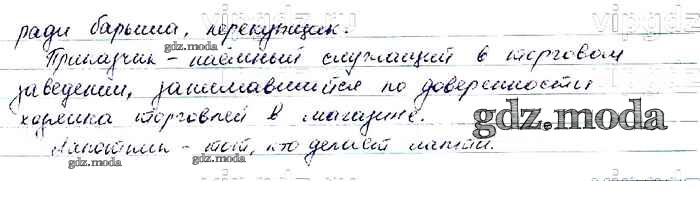 ради барыша, перекупщик.
Приказчик - наёмный служащий в торговом
заведении, занимавшийся по доверенности
хозяина торговлей в магазине.
- тот, кто делает лапти.
gdz.moda
gdz.moda
gdz.moda
gdz.moda
gdz.moda
vipgdz